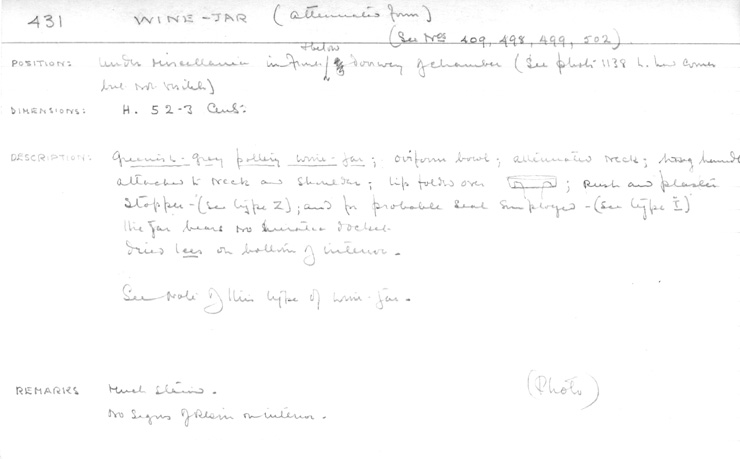 431 WINE-JAR (attenuated form)
(See Nos 409, 498, 499, 502)
POSITION: Under miscellanea in front / & below doorway of chamber (See photo 1138 L. hd corner
but not visible)
DIMENSIONS: H. 52-3 Cent:
DESCRIPTION: Greenish-grey pottery wine-jar; oviform bowl; attenuated neck; strong handle
attached to neck and shoulder; lip folded over ; Rush and plaster
Stopper - (See type Z); and for probable seal employed - (See type I)
The jar bears no hieratic docket.
Dried lees on bottom of interior.
See note of this type of wine-jar.
REMARKS Much stained. (Photo)
No signs of resin on interior.